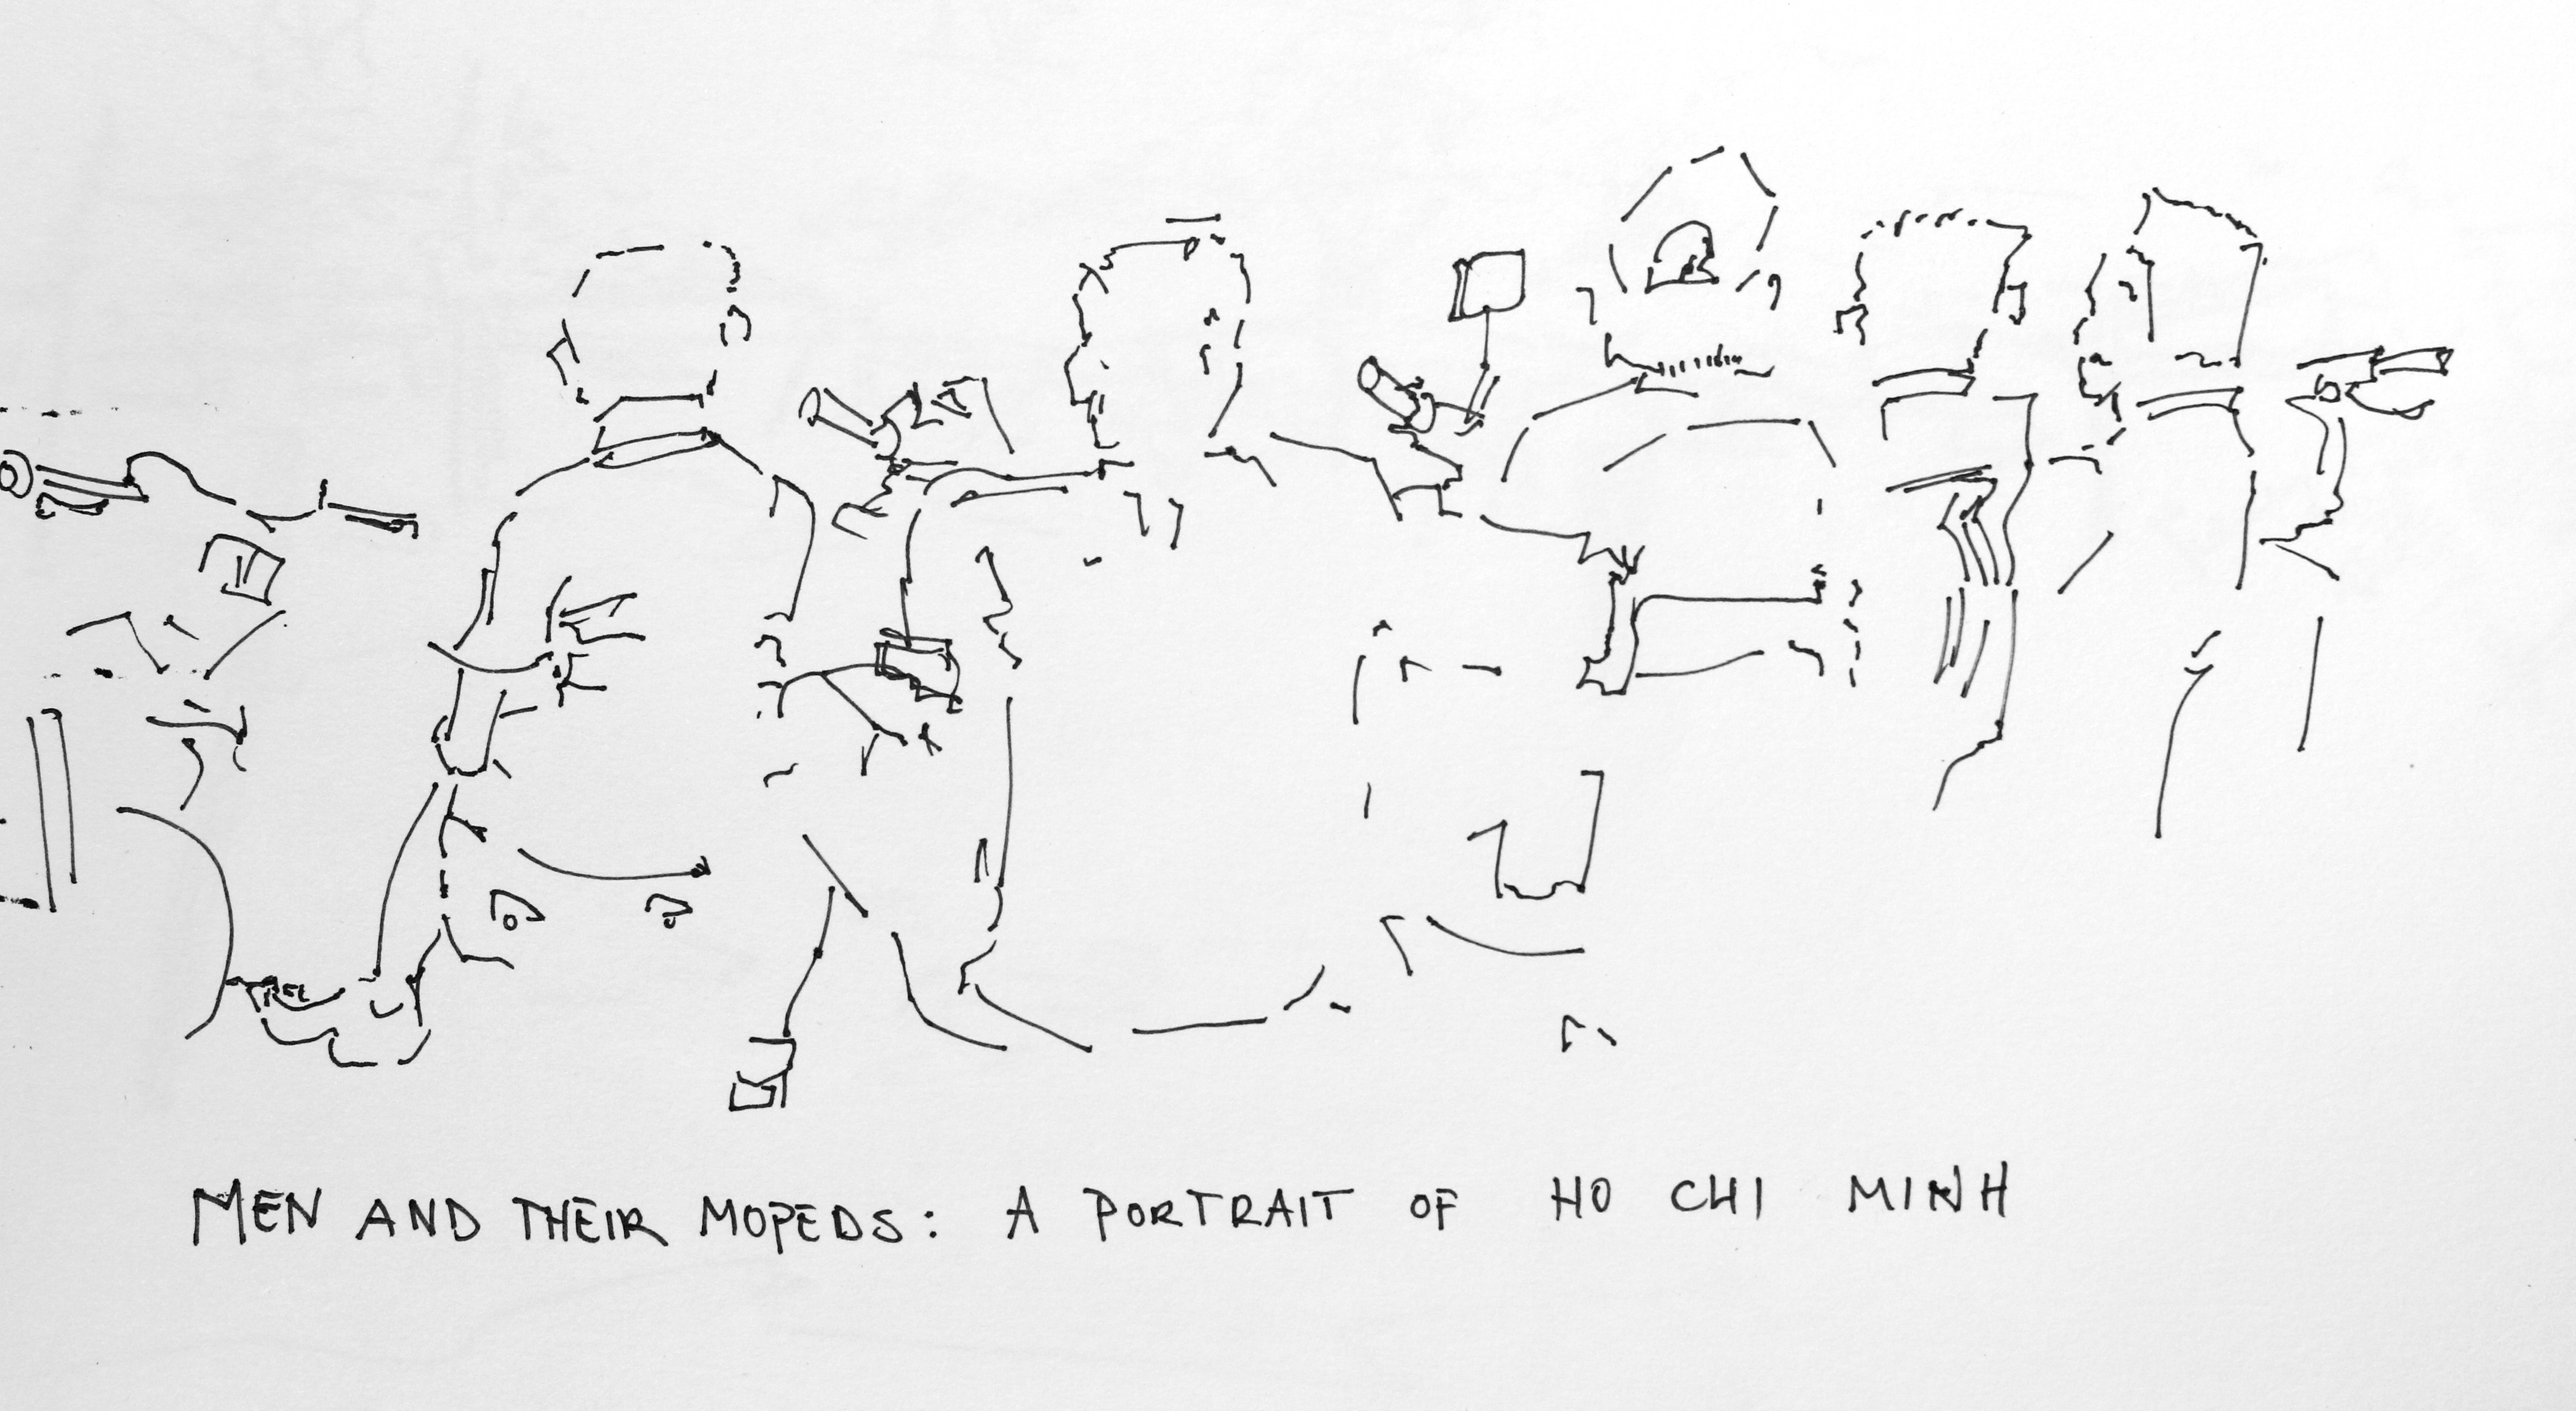 MEN AND THEIR MOPEDS: A PORTRAIT OF HO CHI MINH